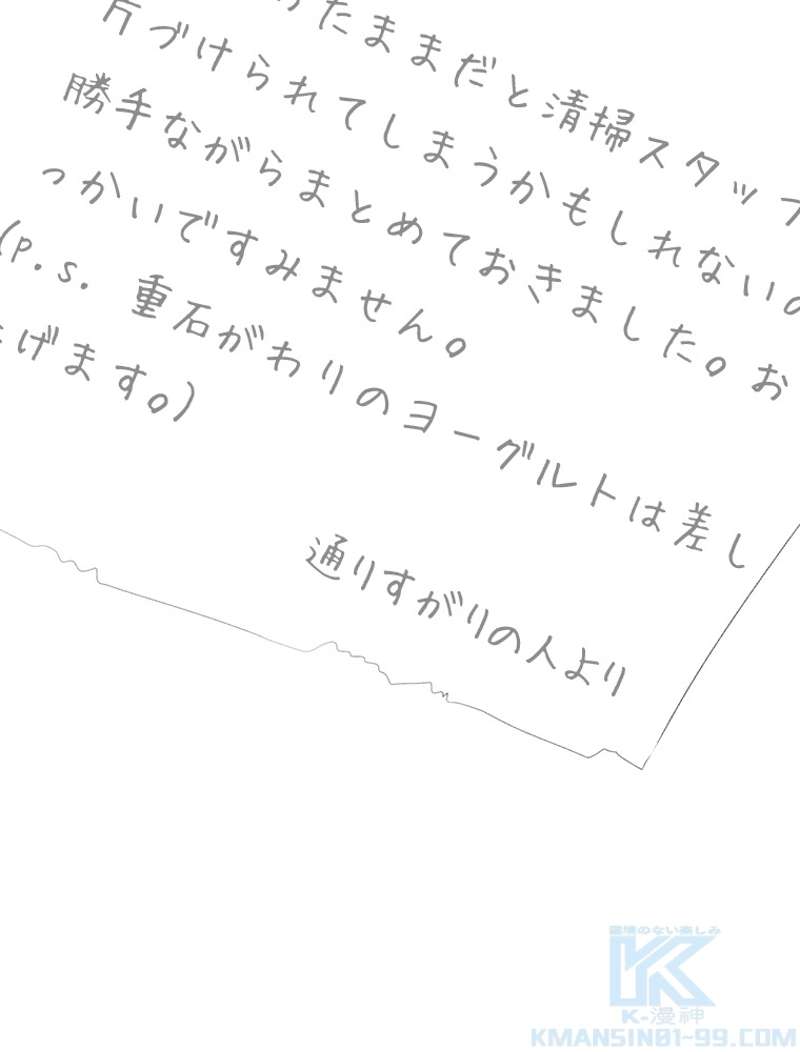 けたままだと清掃スタッフ
片づけられてしまうかもしれないの
勝手ながらまとめておきました。お
っかいですみません。
(p.s. 重石がわりのヨーグルトは差し
上げます。)
通りすがりの人より
国境のない楽しみ
K-漫神
KMANSIN01-99.COM